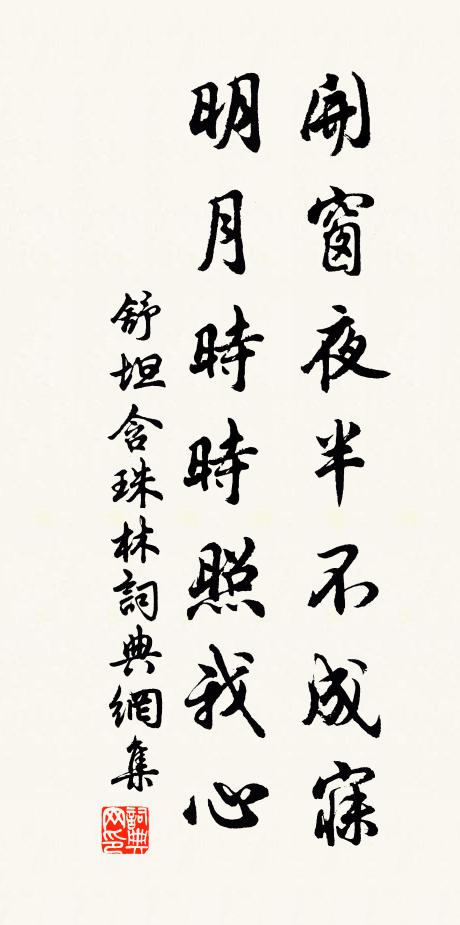 開窗夜半不成寐
明月時時照我心
舒坦含珠林詞典網集
詞典
网印